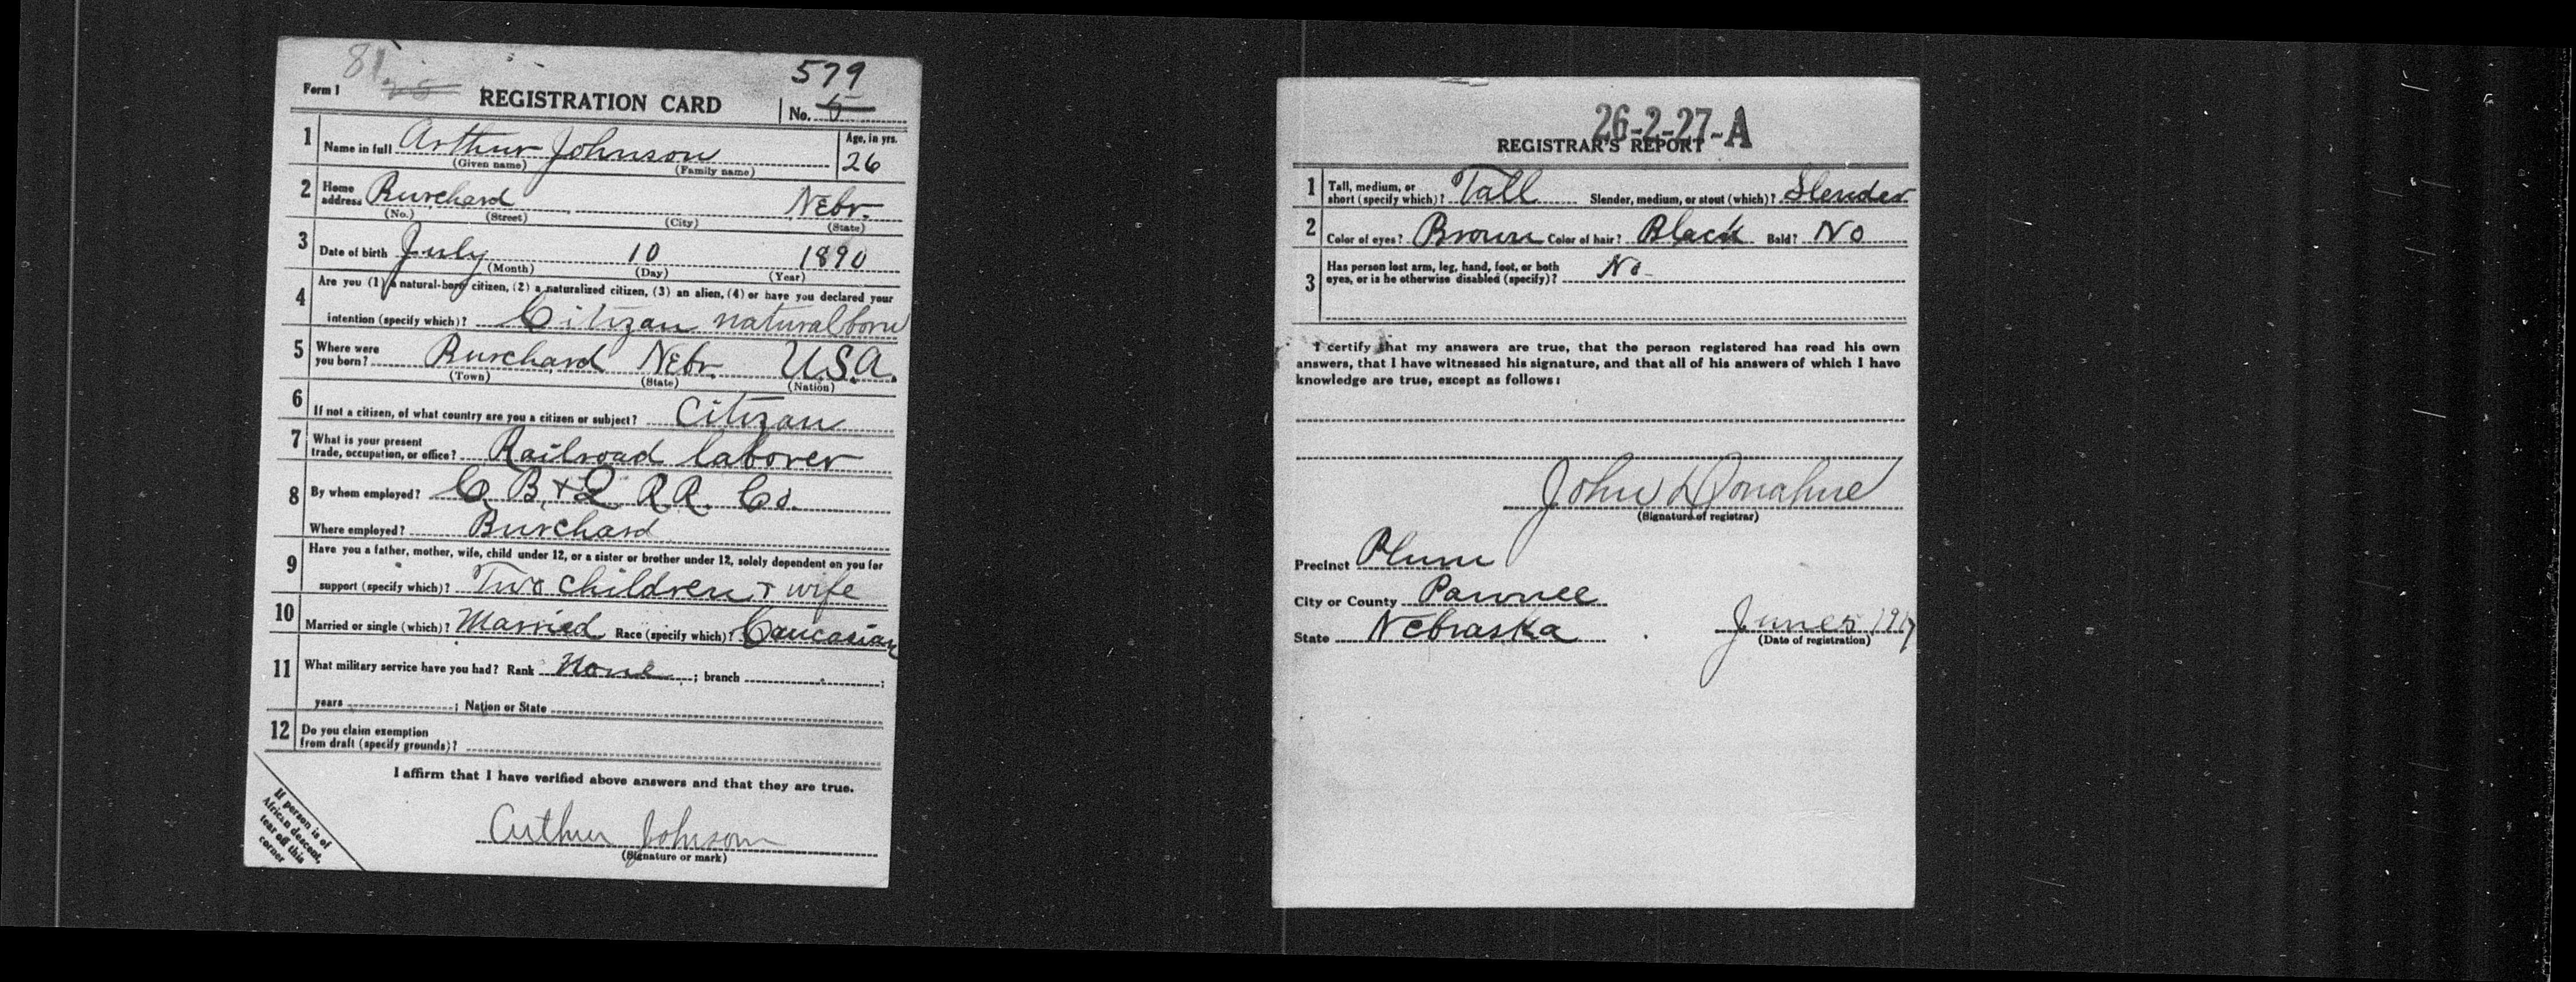 81
579
Form 1 REGISTRATION CARD No.
1 Name in full Arthur Johnson Age, in yrs. 26
(Given name) (Family name)
2 Home address Burchard Nebr.
(No.) (Street) (City) (State)
3 Date of birth July 10 1890
(Month) (Day) (Year)
4 Are you (1) a natural-born citizen, (2) a naturalized citizen, (3) an alien, (4) or have you declared your
intention (specify which)? Citizan natural born
5 Where were you born? Burchard Nebr. U.S.A.
(Town) (State) (Nation)
6 If not a citizen, of what country are you a citizen or subject? Citizan
7 What is your present trade, occupation, or office? Railroad laborer
8 By whom employed? C. B. + Q R.R. Co.
Where employed? Burchard
9 Have you a father, mother, wife, child under 12, or a sister or brother under 12, solely dependent on you for
support (specify which)? Two children + wife
10 Married or single (which)? Married Race (specify which)? Caucasian
11 What military service have you had? Rank None ; branch ;
years ; Nation or State
12 Do you claim exemption
from draft (specify grounds)?
I affirm that I have verified above answers and that they are true.
Arthur Johnson
(Signature or mark)
If person is of
African descent,
tear off this
corner
26-2-27-A
REGISTRAR'S REPORT
1 Tall, medium, or short (specify which)? Tall Slender, medium, or stout (which)? Slender
2 Color of eyes? Brown Color of hair? Black Bald? No
3 Has person lost arm, leg, hand, foot, or both
eyes, or is he otherwise disabled (specify)? No
I certify that my answers are true, that the person registered has read his own
answers, that I have witnessed his signature, and that all of his answers of which I have
knowledge are true, except as follows:
John L Donahue
(Signature of registrar)
Precinct Plum
City or County Pawnee
State Nebraska June 5 1917
(Date of registration)